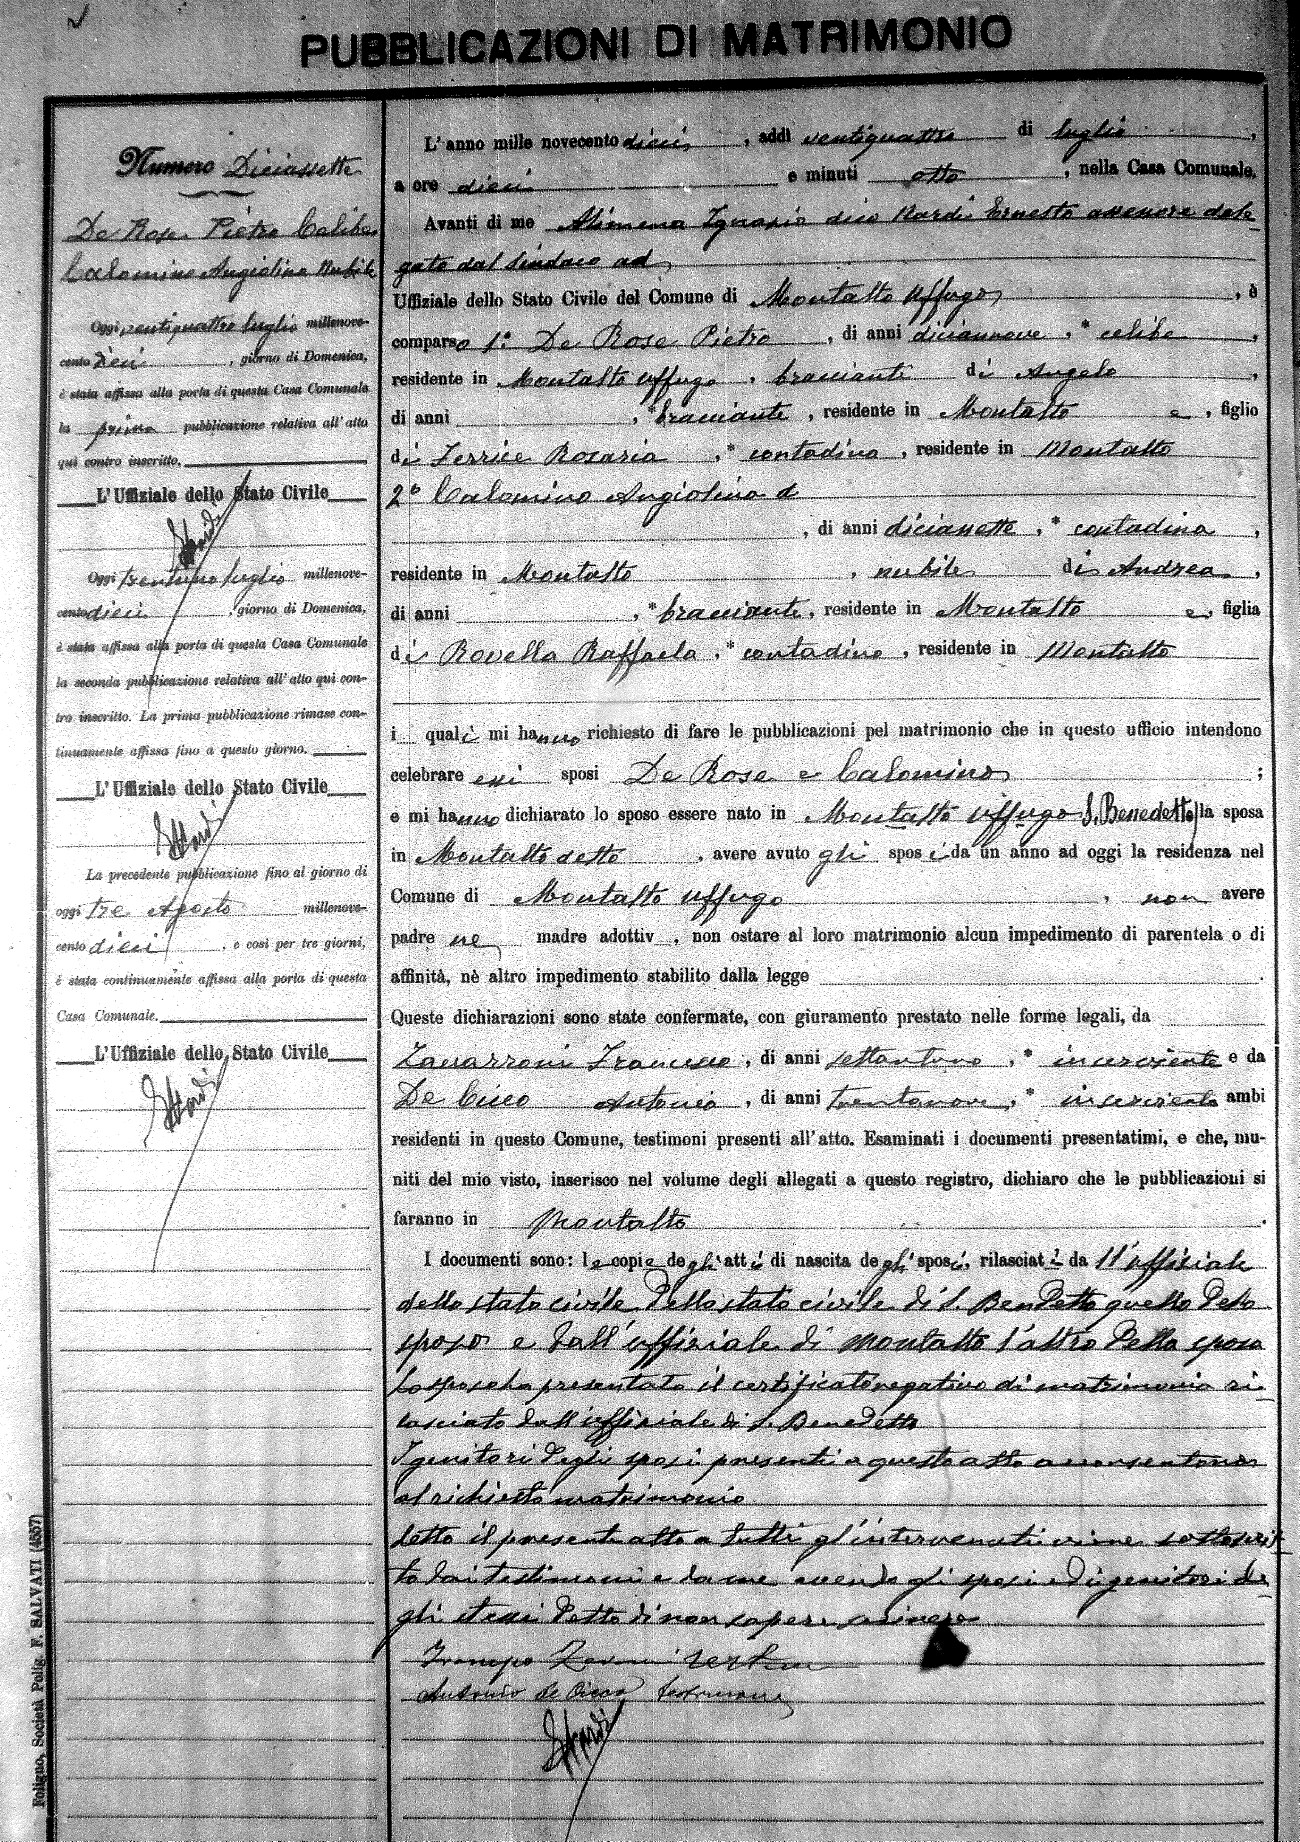 PUBBLICAZIONI DI MATRIMONIO
Numero Diciassette
De Rose Pietro Celibe
Calomino Angiolina Nubile
Oggi ventiquattro luglio millenove-
cento dieci, giorno di Domenica,
è stata affissa alla porta di questa Casa Comunale
la prima pubblicazione relativa all'atto
qui contro inscritto.
L'Uffiziale dello Stato Civile
ENardi
Oggi trentuno luglio millenove-
cento dieci, giorno di Domenica,
è stata affissa alla porta di questa Casa Comunale
la seconda pubblicazione relativa all'atto qui con-
tro inscritto. La prima pubblicazione rimase con-
tinuamente affissa fino a questo giorno.
L'Uffiziale dello Stato Civile
ENardi
La precedente pubblicazione fino al giorno di
oggi tre Agosto millenove-
cento dieci, e così per tre giorni,
è stata continuamente affissa alla porta di questa
Casa Comunale.
L'Uffiziale dello Stato Civile
ENardi
Foligno, Società Polig. F. SALVATI (4557)
L'anno mille novecento dieci, addì ventiquattro di luglio,
a ore dieci e minuti otto, nella Casa Comunale.
Avanti di me Alimena Ignazio dico Nardi Ernesto assessore dele
gato dal sindaco ad
Uffiziale dello Stato Civile del Comune di Montalto Uffugo, è
comparso 1° De Rose Pietro, di anni diciannove, * celibe,
residente in Montalto Uffugo, bracciante di Angelo,
di anni , * bracciante, residente in Montalto e, figlio
di Serrice Rosaria, * contadina, residente in Montalto
2° Calomino Angiolina d
, di anni diciassette, * contadina,
residente in Montalto, nubile di Andrea,
di anni , * bracciante, residente in Montalto e, figlia
di Rovella Raffaela, * contadina, residente in Montalto
i quali mi hanno richiesto di fare le pubblicazioni pel matrimonio che in questo ufficio intendono
celebrare essi sposi De Rose e Calomino;
e mi hanno dichiarato lo sposo essere nato in Montalto Uffugo S. Benedetto, la sposa
in Montalto detto, avere avuto gli sposi da un anno ad oggi la residenza nel
Comune di Montalto Uffugo, non avere
padre nè madre adottiv , non ostare al loro matrimonio alcun impedimento di parentela o di
affinità, nè altro impedimento stabilito dalla legge.
Queste dichiarazioni sono state confermate, con giuramento prestato nelle forme legali, da
Zavarroni Francesco, di anni settantuno, * inserviente e da
De Cicco Antonio, di anni trentanove, * inserviente ambi
residenti in questo Comune, testimoni presenti all'atto. Esaminati i documenti presentatimi, e che, mu-
niti del mio visto, inserisco nel volume degli allegati a questo registro, dichiaro che le pubblicazioni si
faranno in Montalto.
I documenti sono: le copie degli atti di nascita degli sposi, rilasciati da ll'uffiziale
dello stato civile dello stato civile di S. Benedetto quello dello
sposo e dall'uffiziale di Montalto l'altro della sposa
Lo sposo ha presentato il certificato negativo di matrimonio ri
lasciato dall'uffiziale di S. Benedetto
I genitori degli sposi presenti a questo atto acconsentono
al richiesto matrimonio
Letto il presente atto a tutti gl'intervenuti viene sottoscrit
to dai testimoni e da me avendo gli sposi ed i genitori de
gli stessi detto di non sapere scrivere
Antonio de Cicco testimone
ENardi